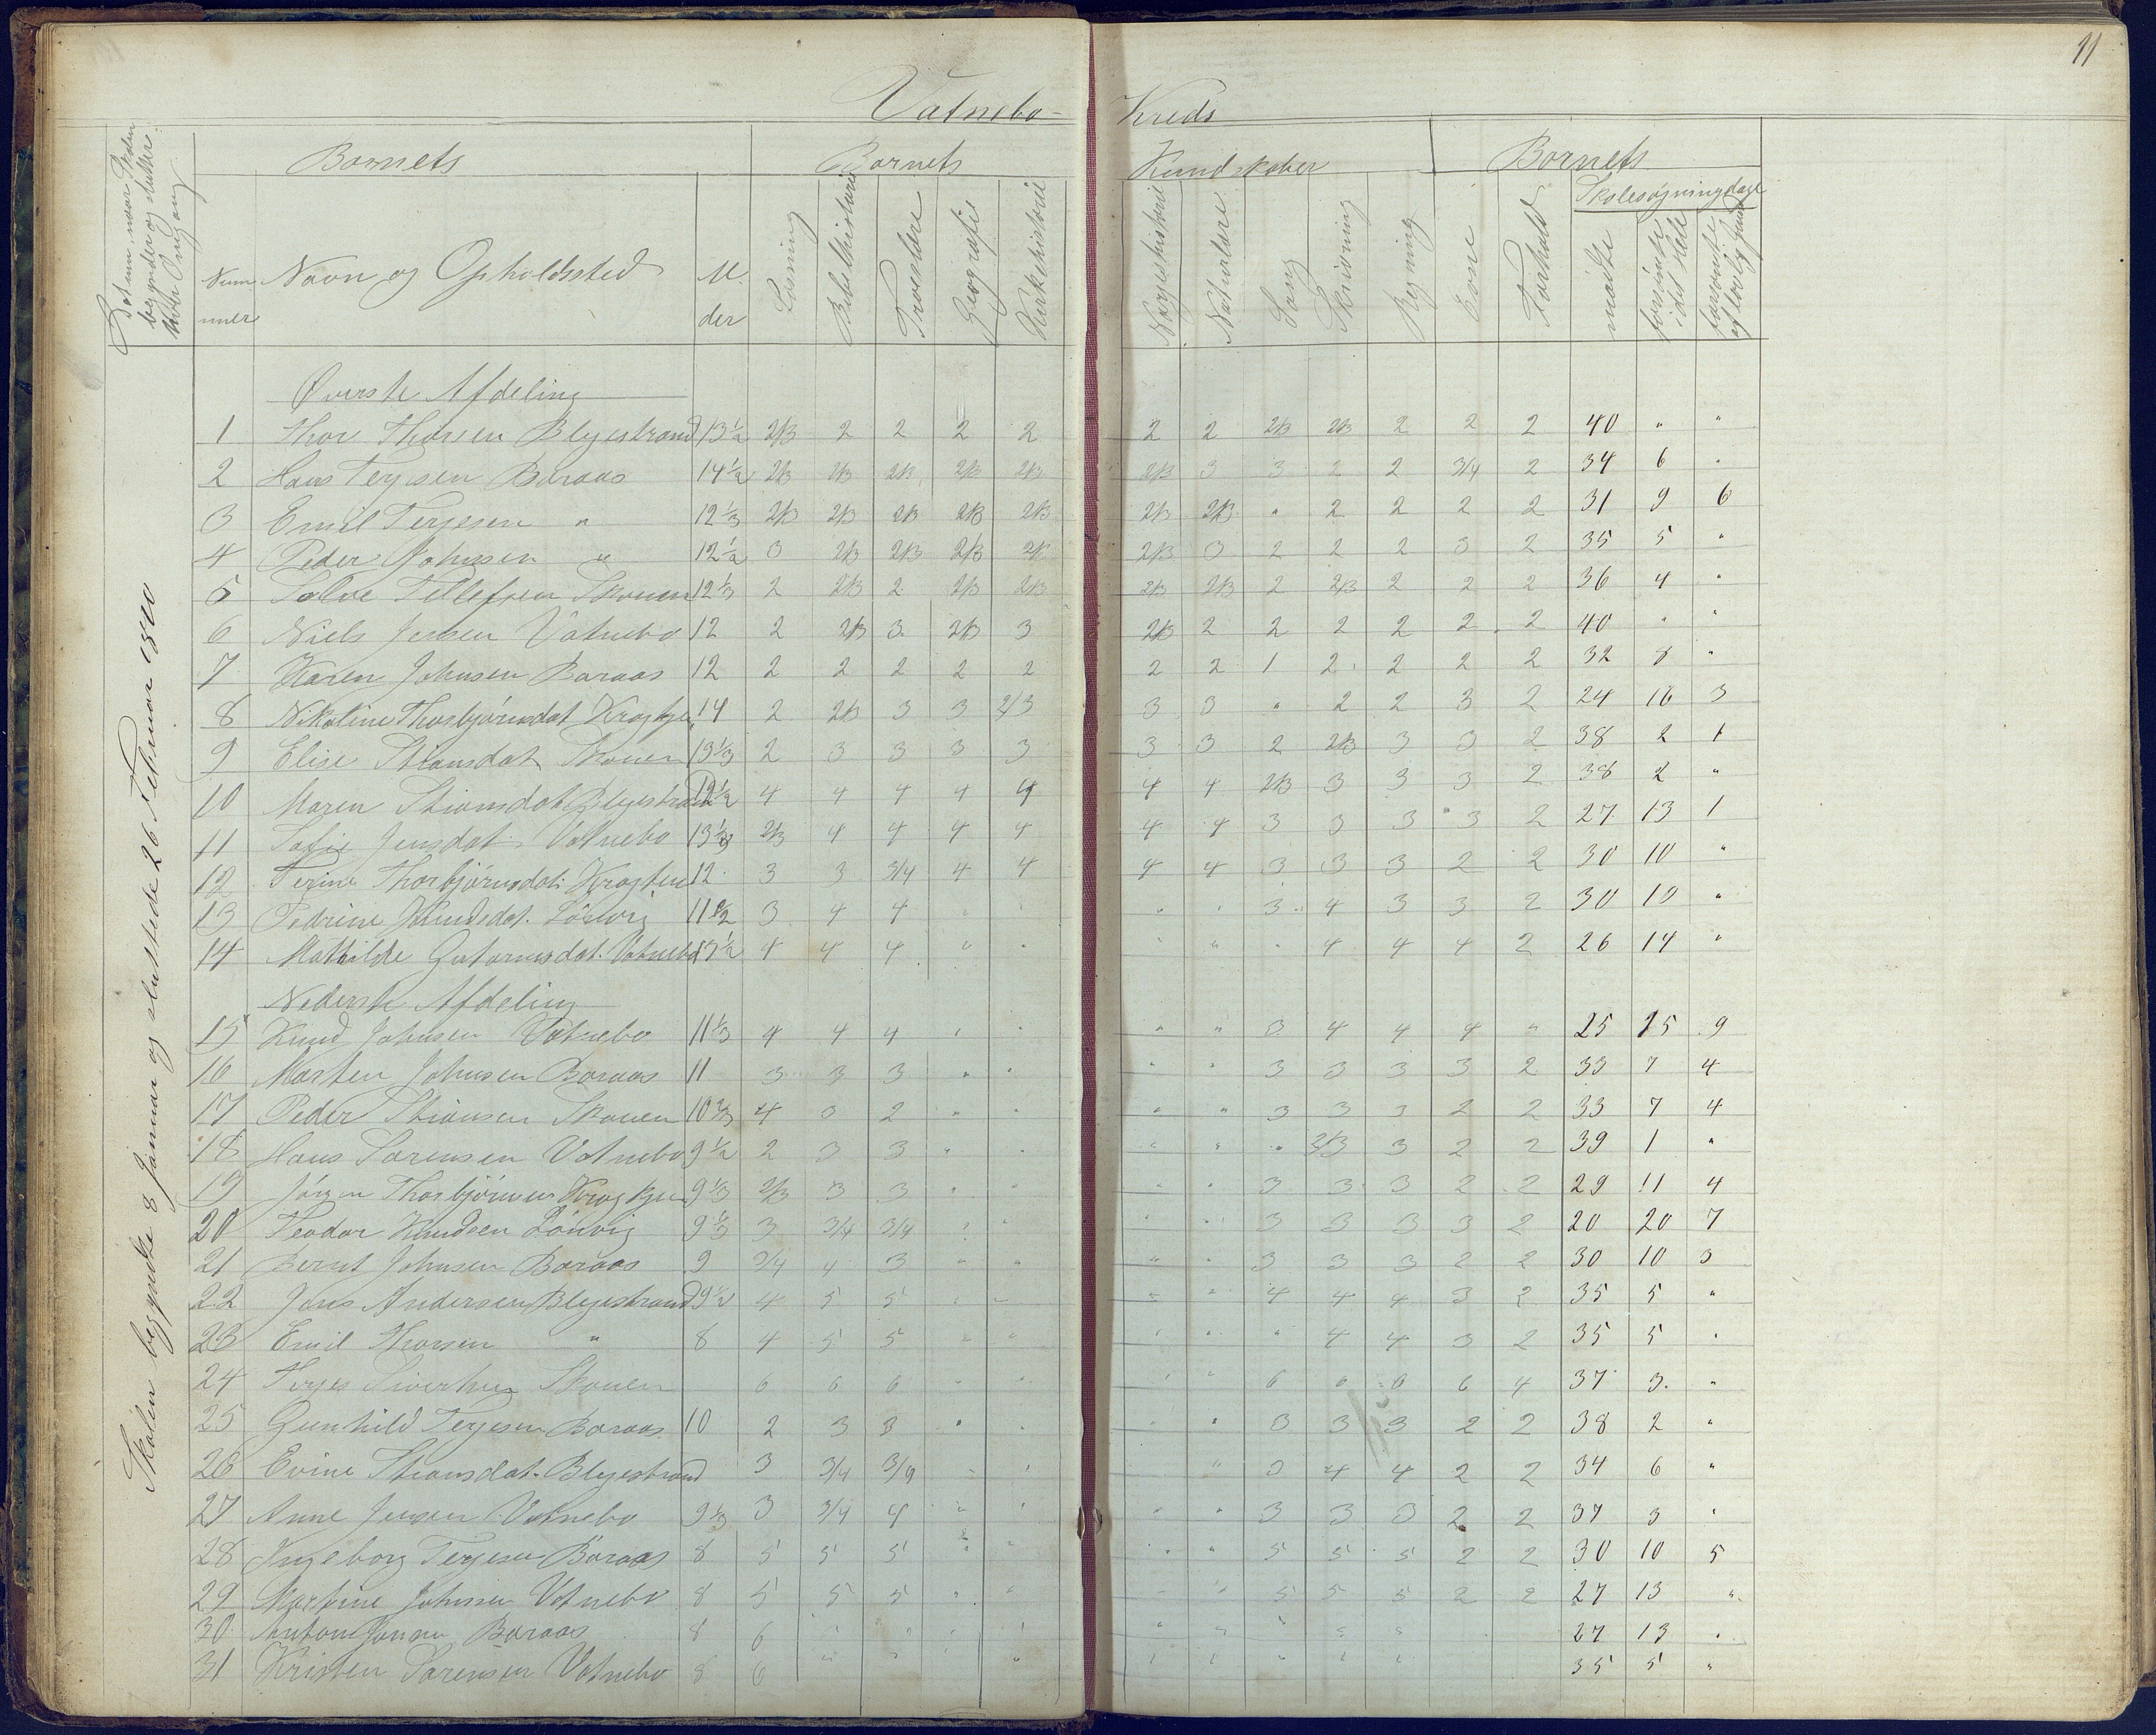 11
Vatnebo- Kreds
Datum, naar Skolen begynder og slutter hver Omgang
Barnets Barnets Kundskaber Barnets
Skolesøgningdage
Num- Navn og Opholdssted Al-
mer der
Læsning Bibelhistorie Troeslære Geografie Kirkehistorie Norgeshistorie Naturlære Sang Skrivning Regning Evne Forhold mødte forsømte i det hele forsømte af lovlig Grund
Skolen begyndte 8 Januar og sluttede 26 Februar 1880
Øverste Afdeling
1 Thor Thorsen Blyestrand 13½ 2/3 2 2 2 2 2 2 2/3 2/3 2 2 2 40 " "
2 Hans Terjesen Baraas 14½ 2/3 2/3 2/3 2/3 2/3 2/3 3 3 2 2 3/4 2 34 6 "
3 Emil Terjesen " 12⅓ 2/3 2/3 2/3 2/3 2/3 2/3 2/3 " 2 2 2 2 31 9 6
4 Peder Johnsen " 12½ 3 2/3 2/3 2/3 2/3 2/3 3 2 2 2 3 2 35 5 "
5 Salve Tellefsen Skouen 12⅓ 2 2/3 2 2/3 2/3 2/3 2/3 2 2/3 2 2 2 36 4 "
6 Niels Jensen Vatnebo 12 2 2/3 3 2/3 3 2/3 2 2 2 2 2 2 40 " "
7 Karen Johnsen Baraas 12 2 2 2 2 2 2 2 1 2 2 2 2 32 8 "
8 Nikoline Thorbjørnsdat Krogkjen 14 2 2/3 3 3 2/3 3 3 " 2 2 3 2 24 16 3
9 Elise Stiansdat Skouen 13⅓ 2 3 3 3 3 3 3 2 2/3 3 3 2 38 2 1
10 Maren Stiansdat Blyestrand 12½ 4 4 4 4 4 4 4 2/3 3 3 3 2 38 2 "
11 Sofie Jensdat Vatnebo 13⅓ 2/3 4 4 4 4 4 4 3 3 3 3 2 27 13 1
12 Terine Thorbjørnsdat. Krogkjen 12 3 3 3/4 4 4 4 4 3 3 3 2 2 30 10 "
13 Pedrine Knudsdat. Lönvig 11½ 3 4 4 " " " " 3 4 3 3 2 30 10 "
14 Mathilde Gutormsdat. Vatnebo 13½ 4 4 4 " " " " " 4 4 4 2 26 14 "
Nederste Afdeling
15 Knud Johnsen Vatnebo 11⅓ 4 4 4 " " " " 3 4 4 4 " 25 15 9
16 Morten Johnsen Baraas 11 3 3 3 " " " " 3 3 3 3 2 33 7 4
17 Peder Stiansen Skouen 10⅔ 4 3 2 " " " " 3 3 3 2 2 33 7 4
18 Hans Sørensen Vatnebo 9½ 2 3 3 " " " " " 3/3 3 2 2 39 1 "
19 Jörgen Thorbjörnsen Krogkjen 9⅓ 2/3 3 3 " " " " 3 3 3 2 2 29 11 4
20 Teodor Knudsen Lönvig 9⅓ 3 3/4 3/4 " " " " 3 3 3 3 2 20 20 7
21 Bernt Johnsen Baraas 9 3/4 4 3 " " " " 3 3 3 2 2 30 10 3
22 Jens Andersen Blyestrand 9½ 4 5 5 " " " " 4 4 4 3 2 35 5 "
23 Emil Thorsen " 8 4 5 5 " " " " " 4 4 3 2 35 5 "
24 Terjes Siverthsen Skouen 6 6 6 " " " " 6 6 6 6 4 37 3 "
25 Gunhild Terjesen Baraas 10 2 3 3 " " " " 3 3 3 2 2 38 2 "
26 Evine Stiansdat. Blyestrand 3 3/4 3/4 " " " " 3 4 4 2 2 34 6 "
27 Anne Jensen Vatnebo 9⅓ 3 3/4 4 " " " " 3 3 3 2 2 37 3 "
28 Ingeborg Terjesen Baraas 8 5 5 5 " " " " 5 5 5 2 2 30 10 5
29 Martine Johnsen Vatnebo 8 5 5 5 " " " " 5 5 5 2 2 27 13 "
30 Anton Jonsen Baraas 8 6 " " " " " " " " " 27 13 "
31 Kristen Sørensen Vatnebo 8 6 " " " " " " " " " 35 5 "